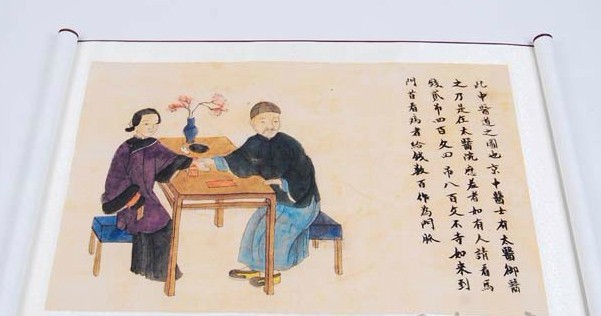 此中醫道之圖也京中醫士有太醫御醫
之乃是在太醫院應差者如有人請看馬
錢貳吊四百文四吊八百文不等如来到
門首看病者給錢數百作為門脉